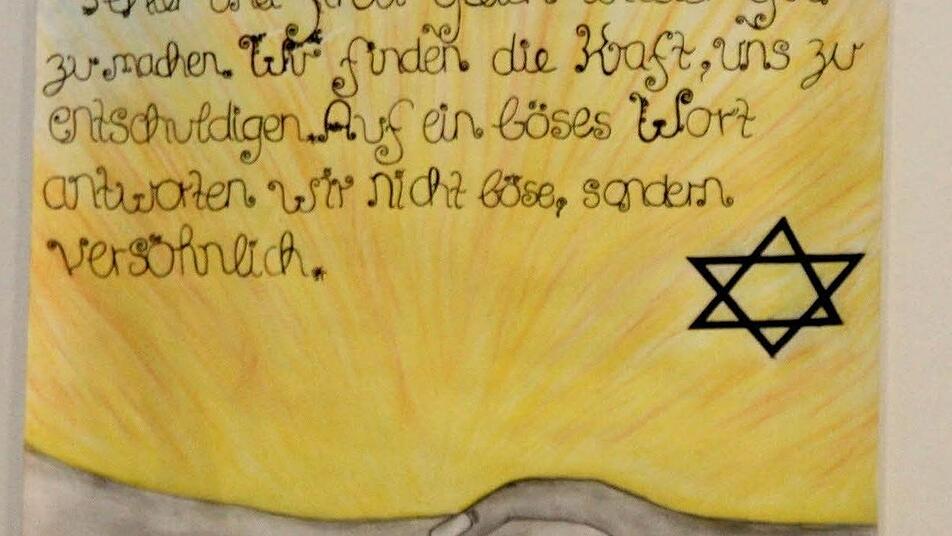 zu machen. Wir finden die Kraft, uns zu
entschuldigen. Auf ein böses Wort
antworten wir nicht böse, sondern
versöhnlich.